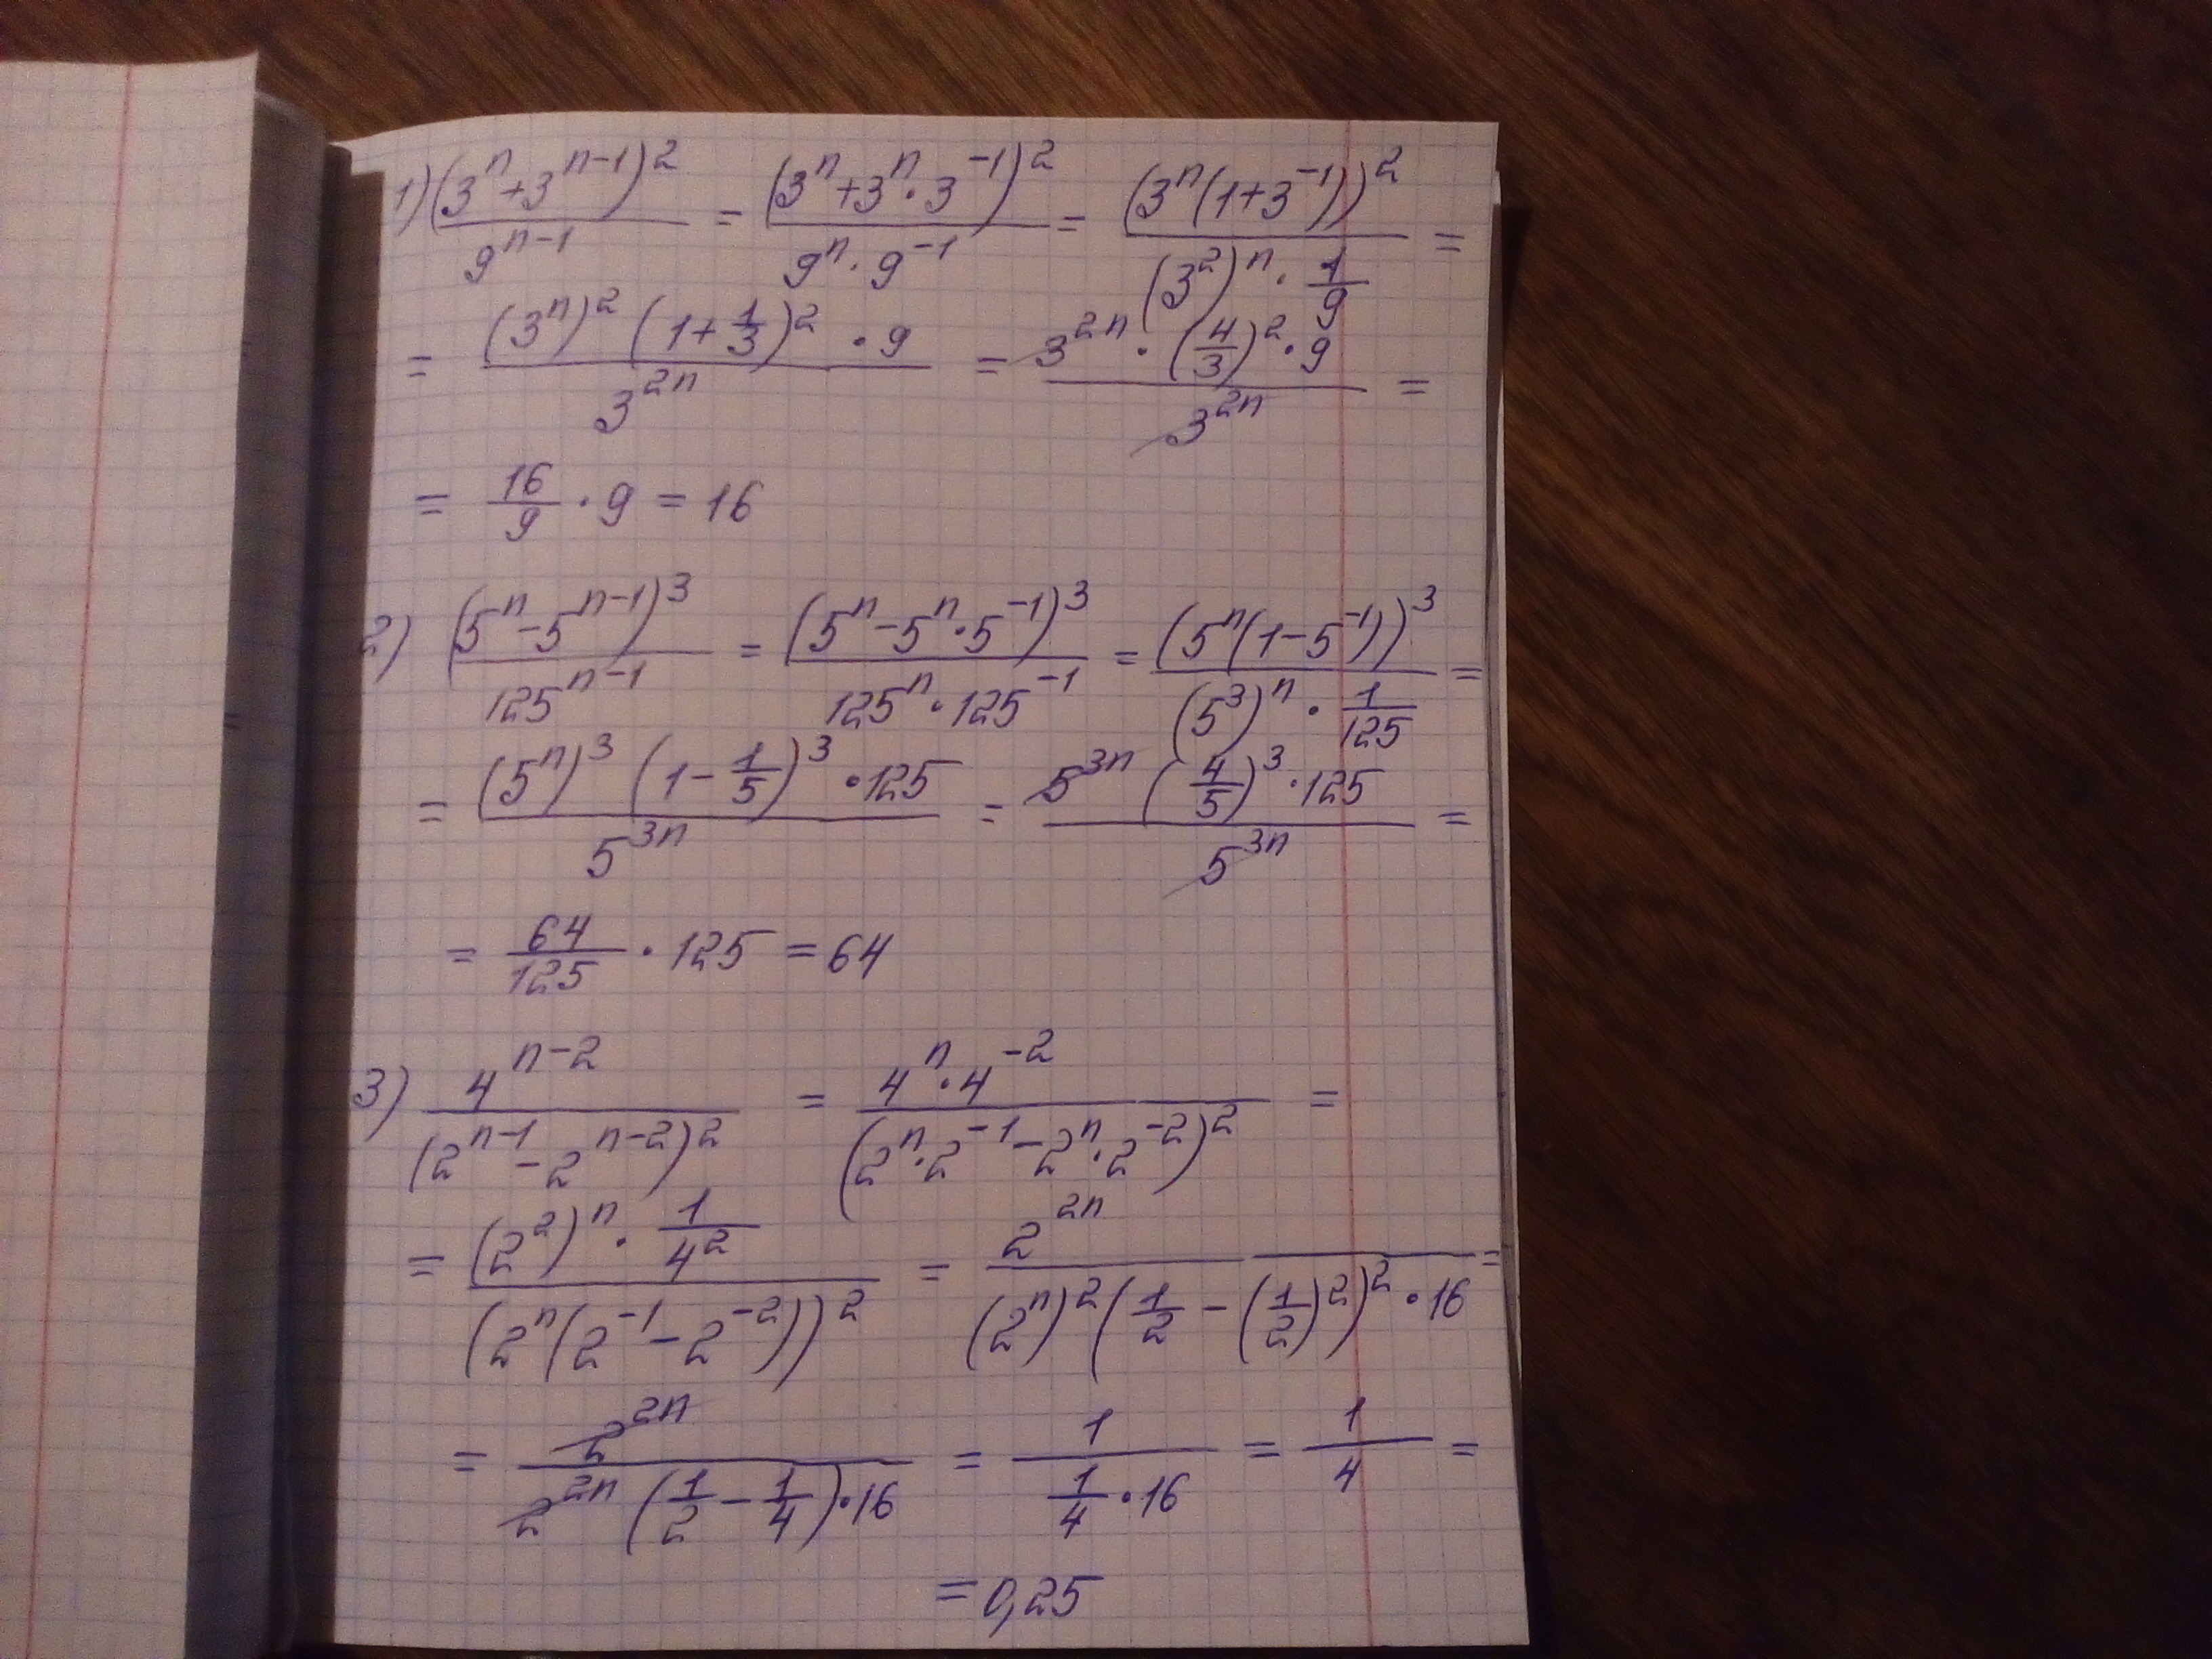 1) (3^n + 3^{n-1})^2 / 9^{n-1} = (3^n + 3^n · 3^{-1})^2 / (9^n · 9^{-1}) = (3^n (1 + 3^{-1}))^2 / ((3^2)^n · 1/9) =
= (3^n)^2 (1 + 1/3)^2 · 9 / 3^{2n} = 3^{2n} · (4/3)^2 · 9 / 3^{2n} =
= 16/9 · 9 = 16
2) (5^n - 5^{n-1})^3 / 125^{n-1} = (5^n - 5^n · 5^{-1})^3 / (125^n · 125^{-1}) = (5^n (1 - 5^{-1}))^3 / ((5^3)^n · 1/125) =
= (5^n)^3 (1 - 1/5)^3 · 125 / 5^{3n} = 5^{3n} (4/5)^3 · 125 / 5^{3n} =
= 64/125 · 125 = 64
3) 4^{n-2} / (2^{n-1} - 2^{n-2})^2 = 4^n · 4^{-2} / (2^n · 2^{-1} - 2^n · 2^{-2})^2 =
= (2^2)^n · 1/4^2 / (2^n (2^{-1} - 2^{-2}))^2 = 2^{2n} / ((2^n)^2 (1/2 - (1/2)^2)^2 · 16) =
= 2^{2n} / (2^{2n} (1/2 - 1/4) · 16) = 1 / (1/4 · 16) = 1/4 =
= 0,25